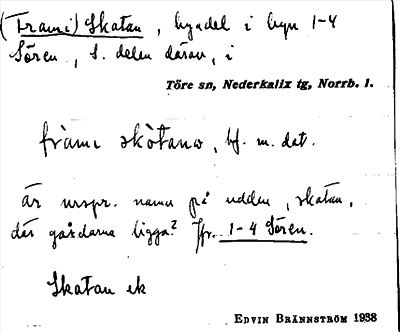 (Frami) Skatan, bydel i byn 1-4
Sören, S. delen därav, i
Töre sn, Nederkalix tg, Norrb. l.
fràmı skòtano, bf. m. dat.
är urspr. namn på udden, skatan,
där gårdarna ligga? Jfr. 1-4 Sören.
Skatan ek
EDVIN BRÄNNSTRÖM 1938